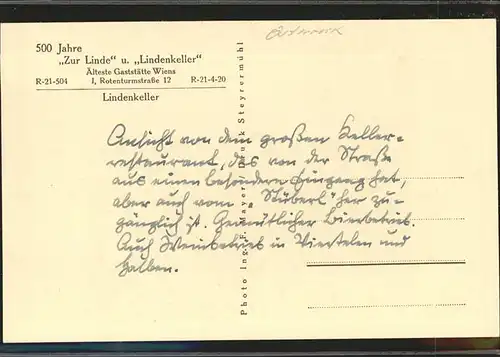 Österreich
500 Jahre
„Zur Linde" u. „Lindenkeller"
Älteste Gaststätte Wiens
R-21-504 I, Rotenturmstraße 12 R-21-4-20
Lindenkeller
Ansicht von dem großen Keller-
restaurant, das von der Straße
aus einen besonderen Eingang hat,
aber auch vom „Stüberl" her zu-
gänglich ist. Gemütlicher Bierbetrieb.
Auch Weinbetrieb in Vierteln und
Halben.
Photo Ing. F. Mayer, Druck Steyrermühl